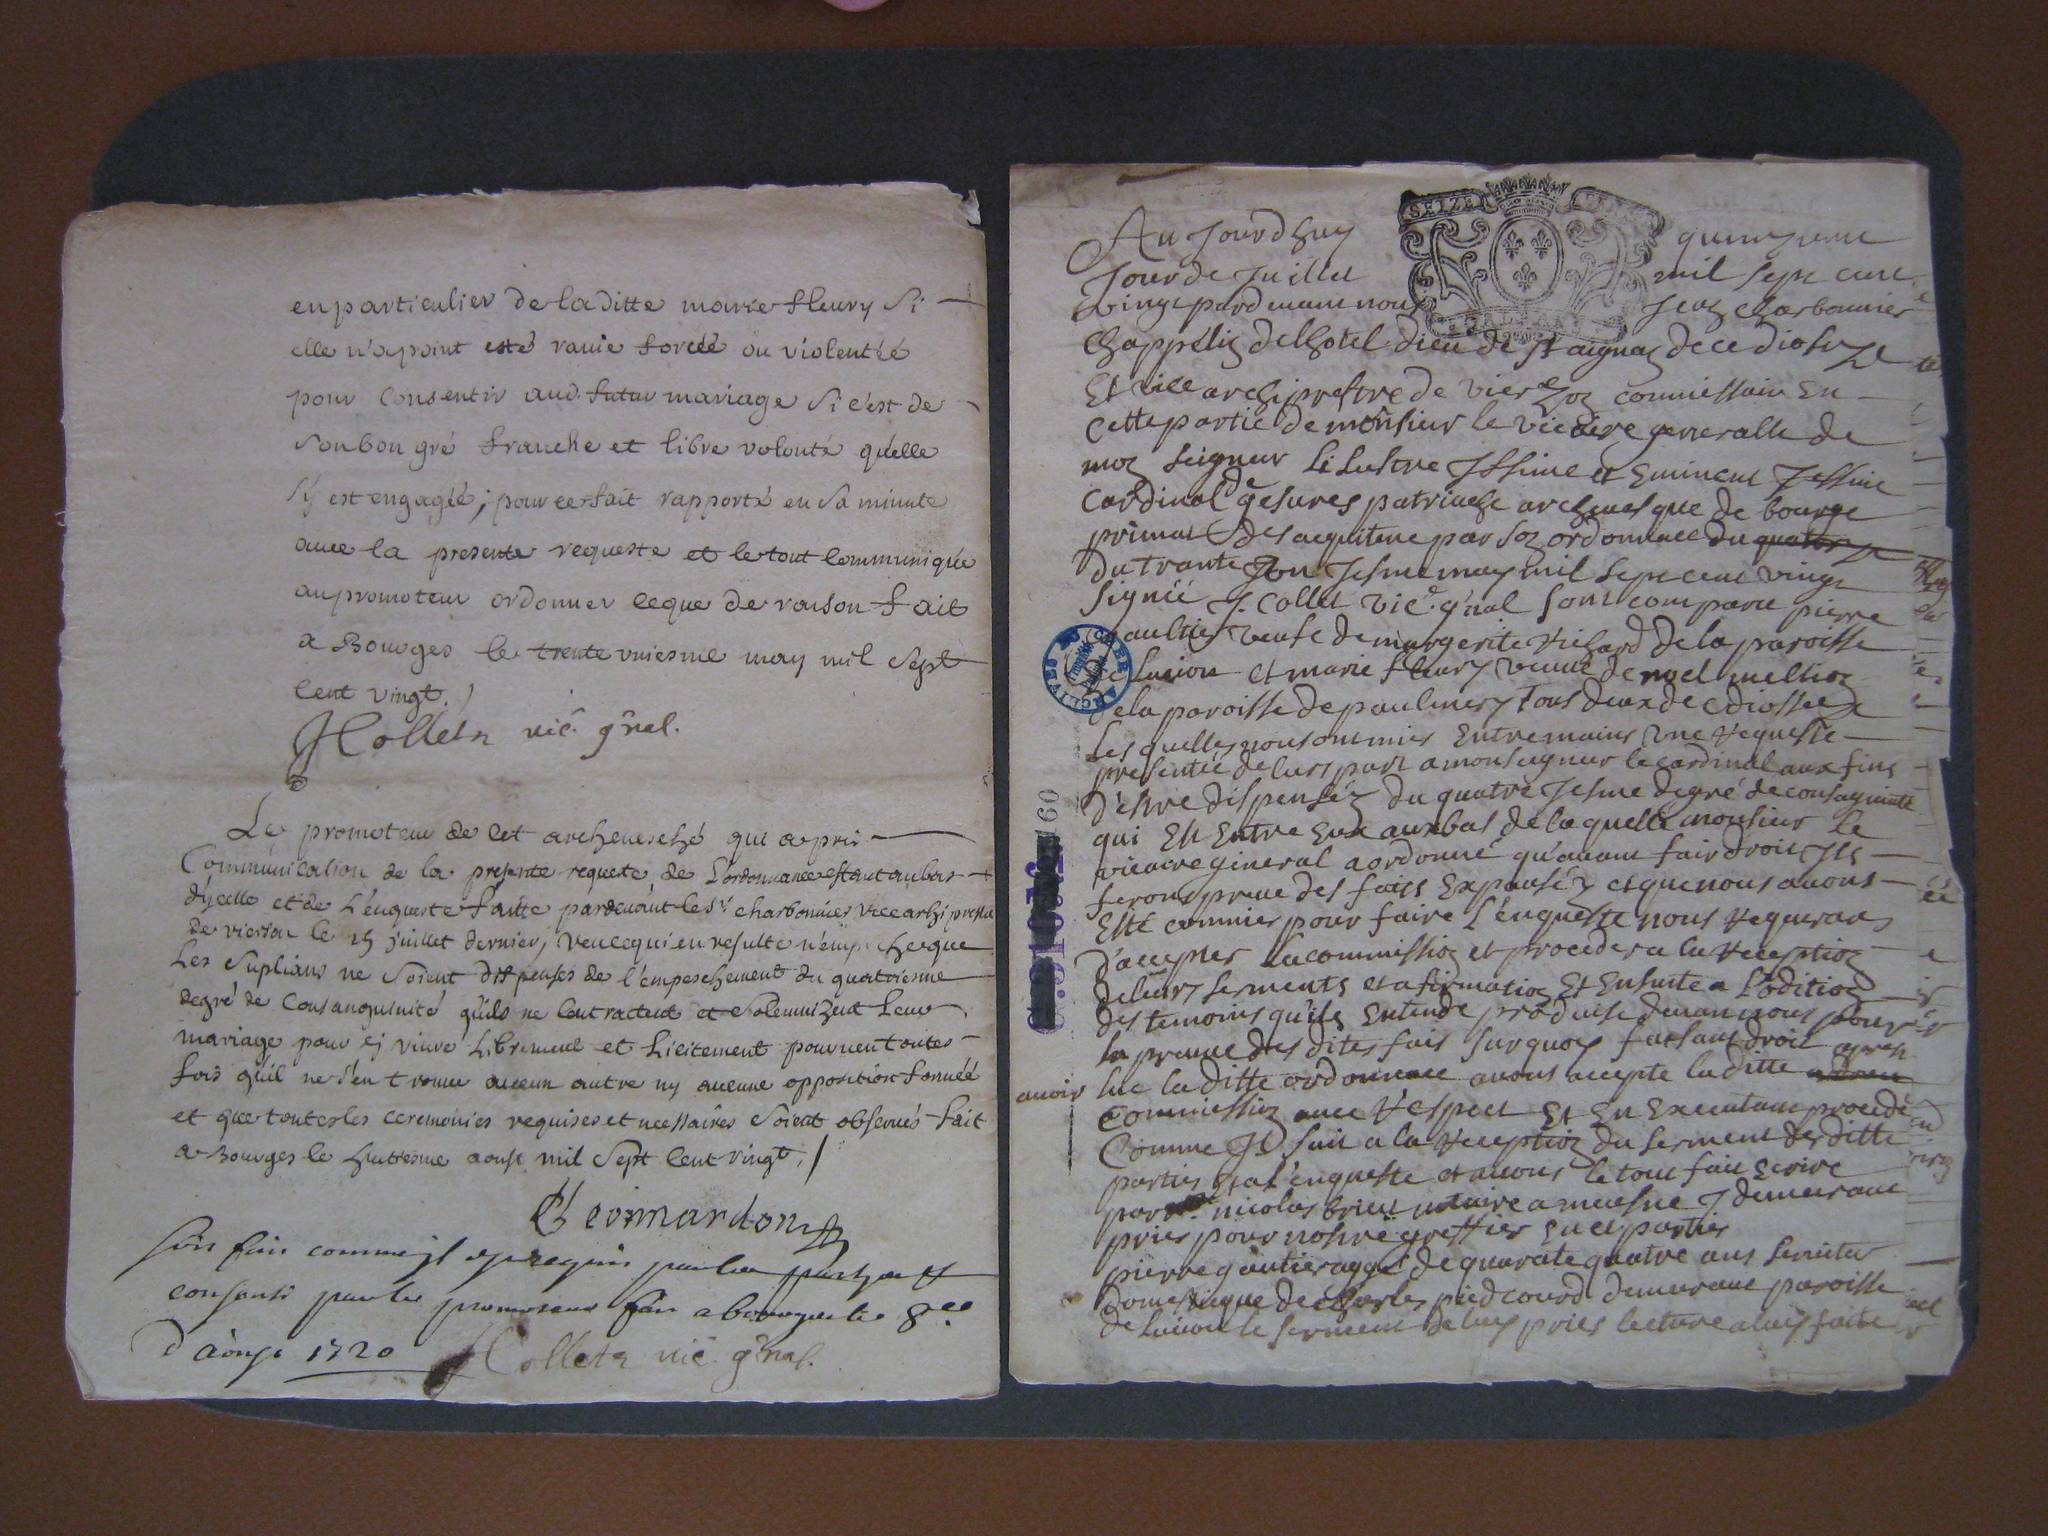 en particulier de la ditte marie fleury si
elle n'a point esté ravie forcéé ou violentéé
pour Consentir aud. futur mariage si c'est de
son bon gré franche et libre volonté qu'elle
s'y est engagéé; pour ce fait rapporté en sa minute
avec la presente requeste et le tout Communiqué
au promoteur ordonner ce que de raison fait
a Bourges le trente uniesme may mil sept
Cent vingt./
JColletz vic. gñal.
Le promoteur de cet archevesché qui a pris
Communication de la presente requeste de l'ordonnance estant au bas
d'ycelle et de L'enqueste faitte pardevant le Sr. charbonnier vice archipresttre
de vierson le 15 juillet dernier, veu ce qui en resulte n'empeche que
Les Suplians ne Soient dispensés de l'empeschement du quatriesme
degré de Consanguinité qu'ils ne Contractent et Solemnizent Leur
mariage pour y vivre Librement et Licitement pourveu toutes
fois qu'il ne s'en trouve aucun autre ny aucune opposition forméé
et que toutes les ceremonies requises et necessaires Soient observés fait
a Bourges le huitiesme aoust mil Sept Cent vingt./
soit fait comme il est requis par les parties et
consenti par le promoteur fait a bourges le 8ce
d'aoust 1720 JColletz vic. gñal.
SEIZE
Au Jourdhuy quinzieme
Jour de Juillet mil sept cent
vingt pardevant nous Jean charbonnier
Chappelin de lhotel dieu de st aignan de ce dioseze
Et vice archiprestre de vierzon commissaire En
Cette partie de monsieur le vicaire generalle de
mon seigneur Lilustre Jssime et Eminent Jssime
Cardinal de gesures patriache archevesque de bourge
primat des acquitene par son ordonnance du quatorze
du trante Jon Jesme may mil sept cent vingt
Signéé J. Collet vic. g'nal sont comparu pierre
gaultier veufe de margerite richard de la paroisse
de Lucion et marie fleury veuve de noel mellion
de la paroisse de paulmery tous deux de ce diosseze
Les quelles nous ont mies Entre mains une requeste
presentéé de leurs part a monseigneur le cardinal aux fins
d'estre dispenséz du quatre Jesme degré de consaginité
qui Est Entre Eux aux bas de laquelle monsieur le
vicaire general a ordonné qu'avant fair droit Jls
feront preuve des faits Expauséz et que nous avons
Esté commies pour faire L'enqueste nous requerans
d'accepter la commission et proceder a la reception
de leurs serments et afirmation Et Ensuite a Lodition
des temoins qu'ils Entende produise devant nous pour
la preuve des dites fais surquoy faisant droit apres
avoir
luc la ditte ordonnance avons accepte la ditte
Commission avec respect Et En Executant procedé
Comme Jl suit a la reception du serment des ditte
parties Et a L'enqueste et avons le tout fait Ecrire
par nicolas brieu notaire a menesne J demeurant
pries pour nostre greffier En ce parties
pierre gautier aggé de quarate quatre ans serviteur
domestique de charles piedcourd demeurant paroisse
de Lucion le serment de luy pries lecture a luy faite